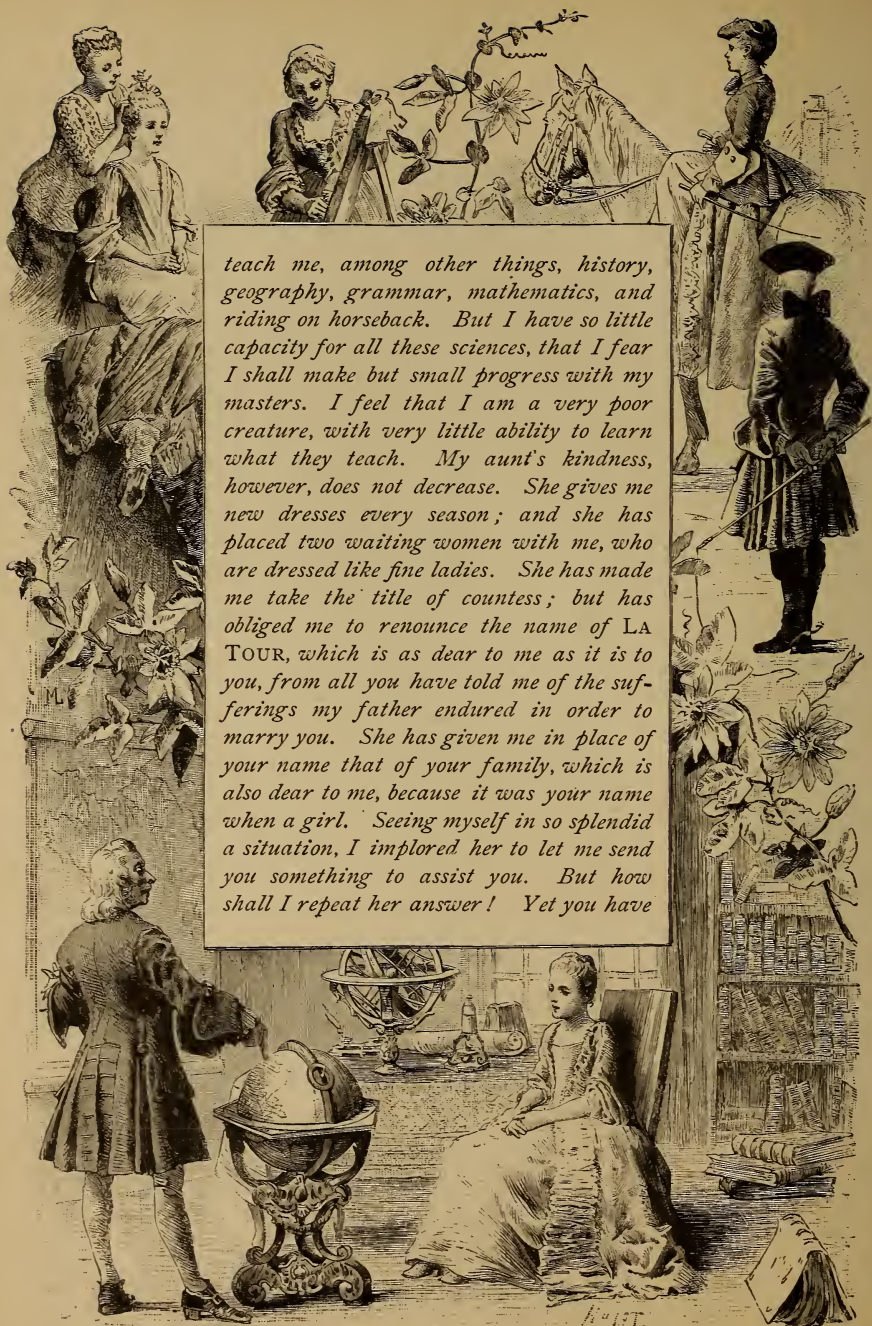 teach me, among other things, history,
geography, grammar, mathematics, and
riding on horseback. But I have so little
capacity for all these sciences, that I fear
I shall make but small progress with my
masters. I feel that I am a very poor
creature, with very little ability to learn
what they teach. My aunt's kindness,
however, does not decrease. She gives me
new dresses every season; and she has
placed two waiting women with me, who
are dressed like fine ladies. She has made
me take the title of countess; but has
obliged me to renounce the name of LA
TOUR, which is as dear to me as it is to
you, from all you have told me of the suf-
ferings my father endured in order to
marry you. She has given me in place of
your name that of your family, which is
also dear to me, because it was your name
when a girl. Seeing myself in so splendid
a situation, I implored her to let me send
you something to assist you. But how
shall I repeat her answer! Yet you have